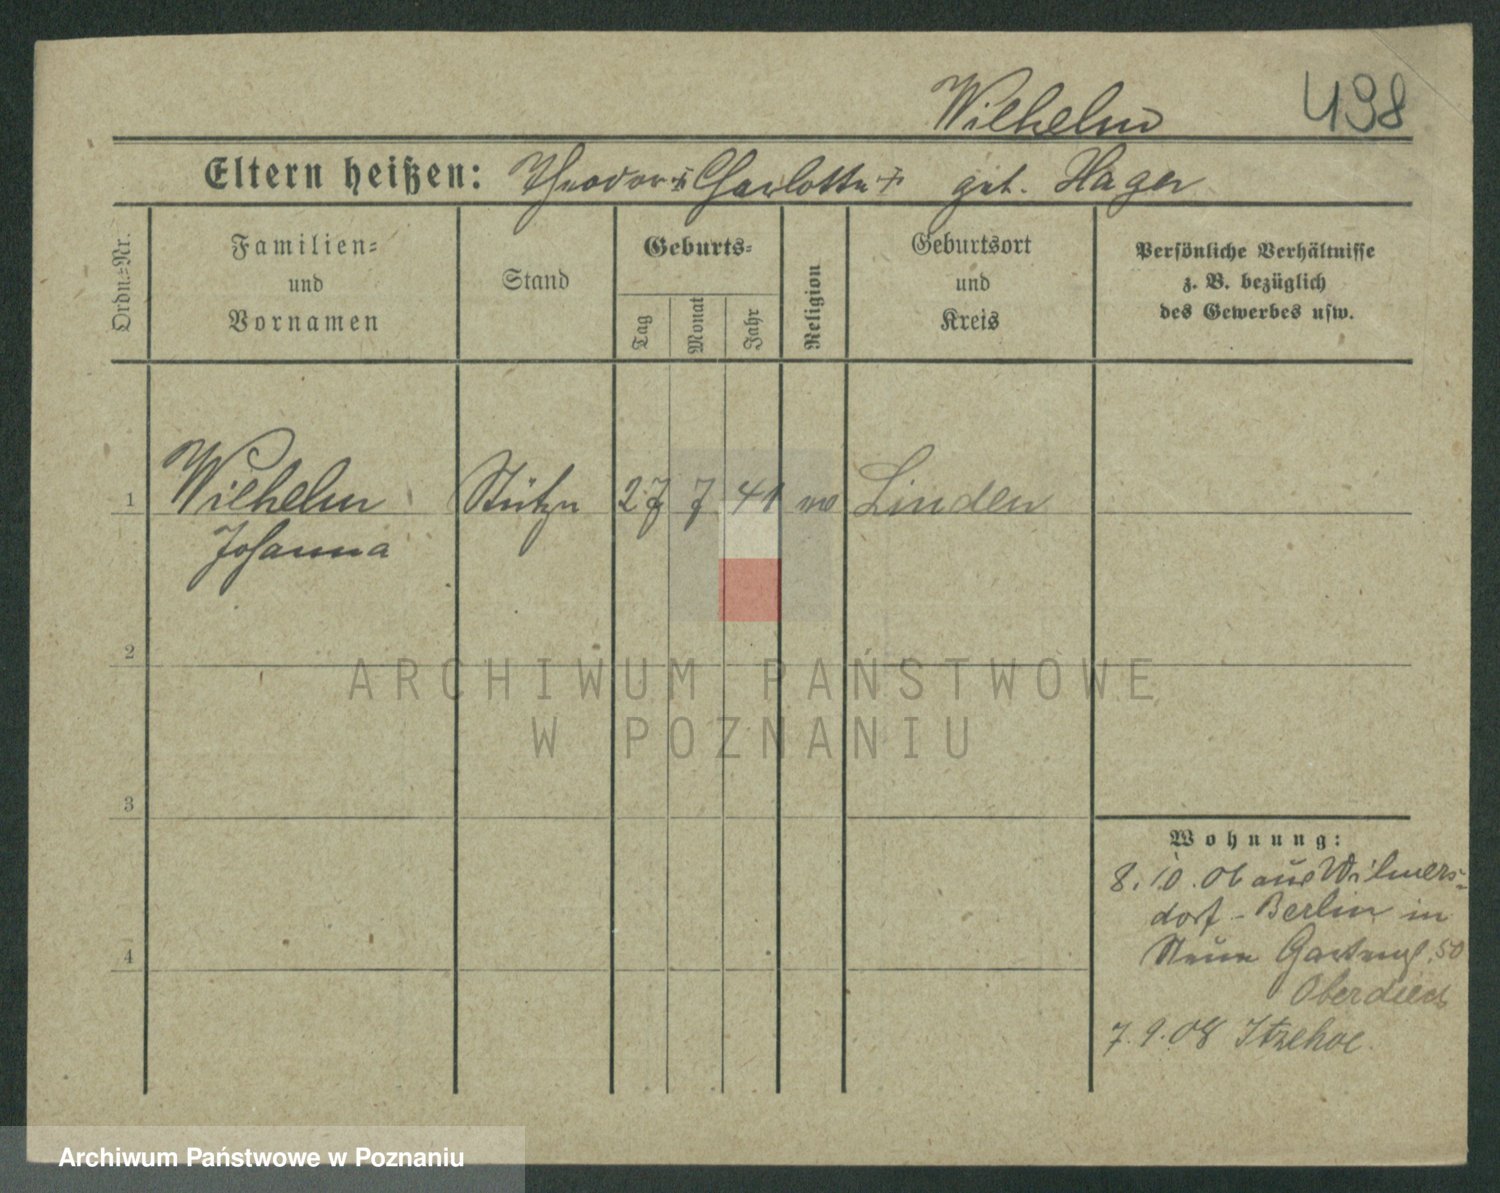 Wilhelm 498
Eltern heißen: Theodor + Charlotte + geb. Hager
Ordn.=Nr.
Familien=
und
Vornamen
Stand
Geburts=
Tag
Monat
Jahr
Religion
Geburtsort
und
Kreis
Persönliche Verhältnisse
z. B. bezüglich
des Gewerbes usw.
1 Wilhelm Stütze 27 7 41 Linden
Johanna
2
3
4
Wohnung:
8. 10. 06 aus Wilmers-
dorf - Berlin in
Neue Gartenst. 50
7. 9. 08 Itzehoe.
ARCHIWUM PAŃSTWOWE
W POZNANIU
Archiwum Państwowe w Poznaniu